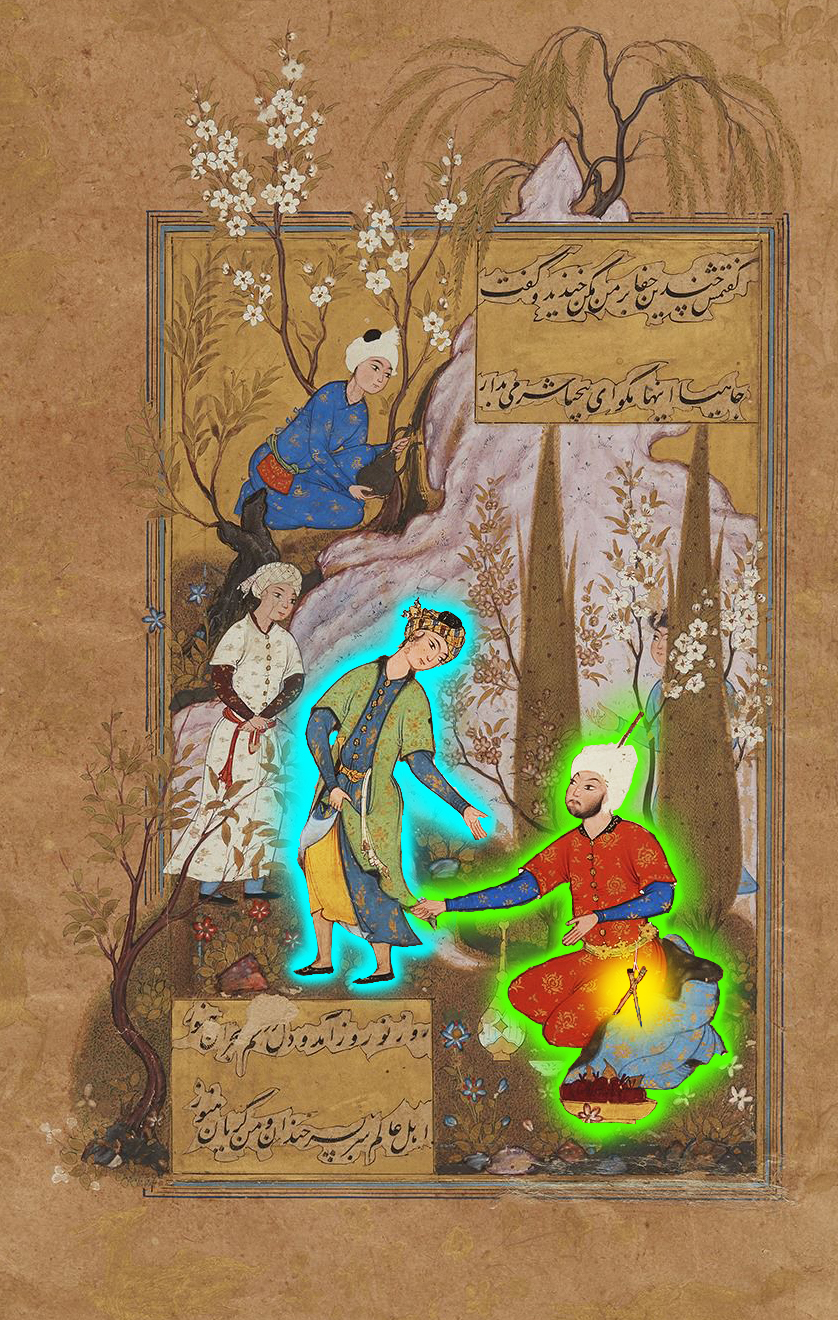 گفتمش چندین جفا بر من مکن خندید و گفت
جاهیا اینها مگو ای بیحیا شرمی بدار
روز نوروز آمد و دل هم بحران هنوز
اهل عالم سر بسر خندان و من گریان هنوز